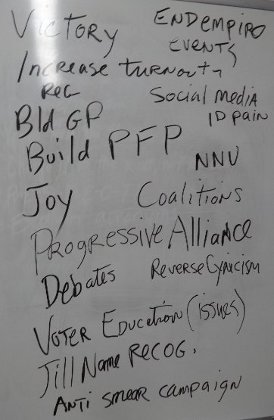 VICTORY
ENDEMPIRE
EVENTS
Increase turnout
REG
Social media
ID PAIN
Bld GP
Build PFP
NNV
JOY
Coalitions
PROGRESSIVE ALLIANCE
Debates
REVERSE CYNICISM
VOTER EDUCATION (issues)
Jill NAME RECOG.
ANTI SMEAR CAMPAIGN